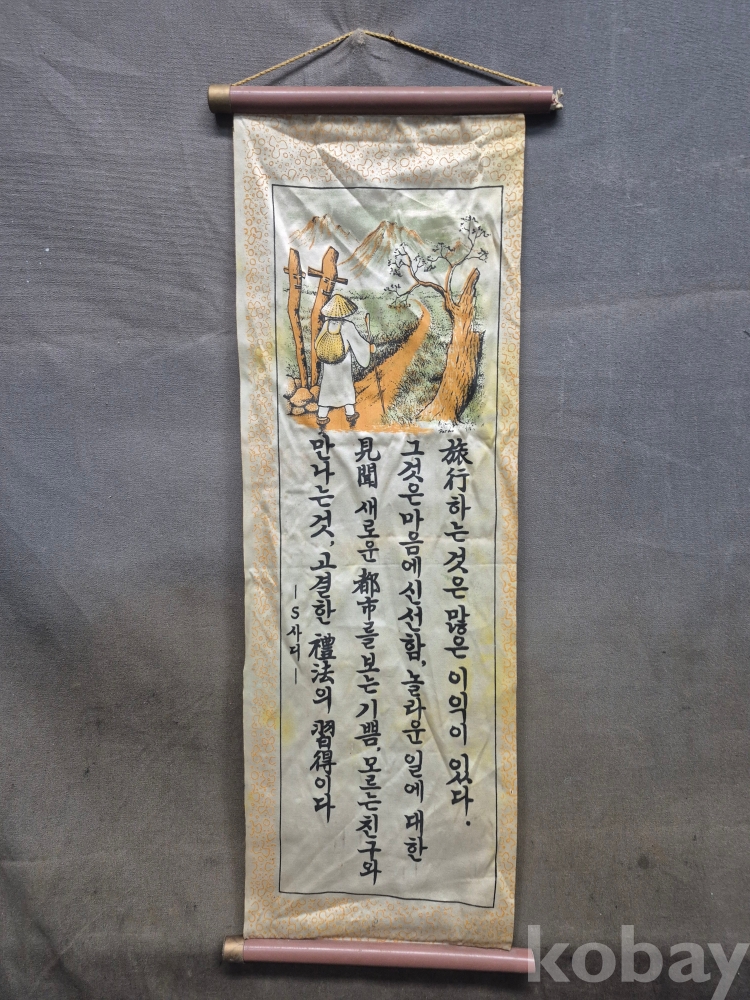 旅行하는 것은 많은 이익이 있다.
그것은 마음에 신선함, 놀라운 일에 대한
見聞 새로운 都市를 보는 기쁨, 모르는 친구와
만나는것, 고결한 禮法의 習得이다
—S 사디—
kobay